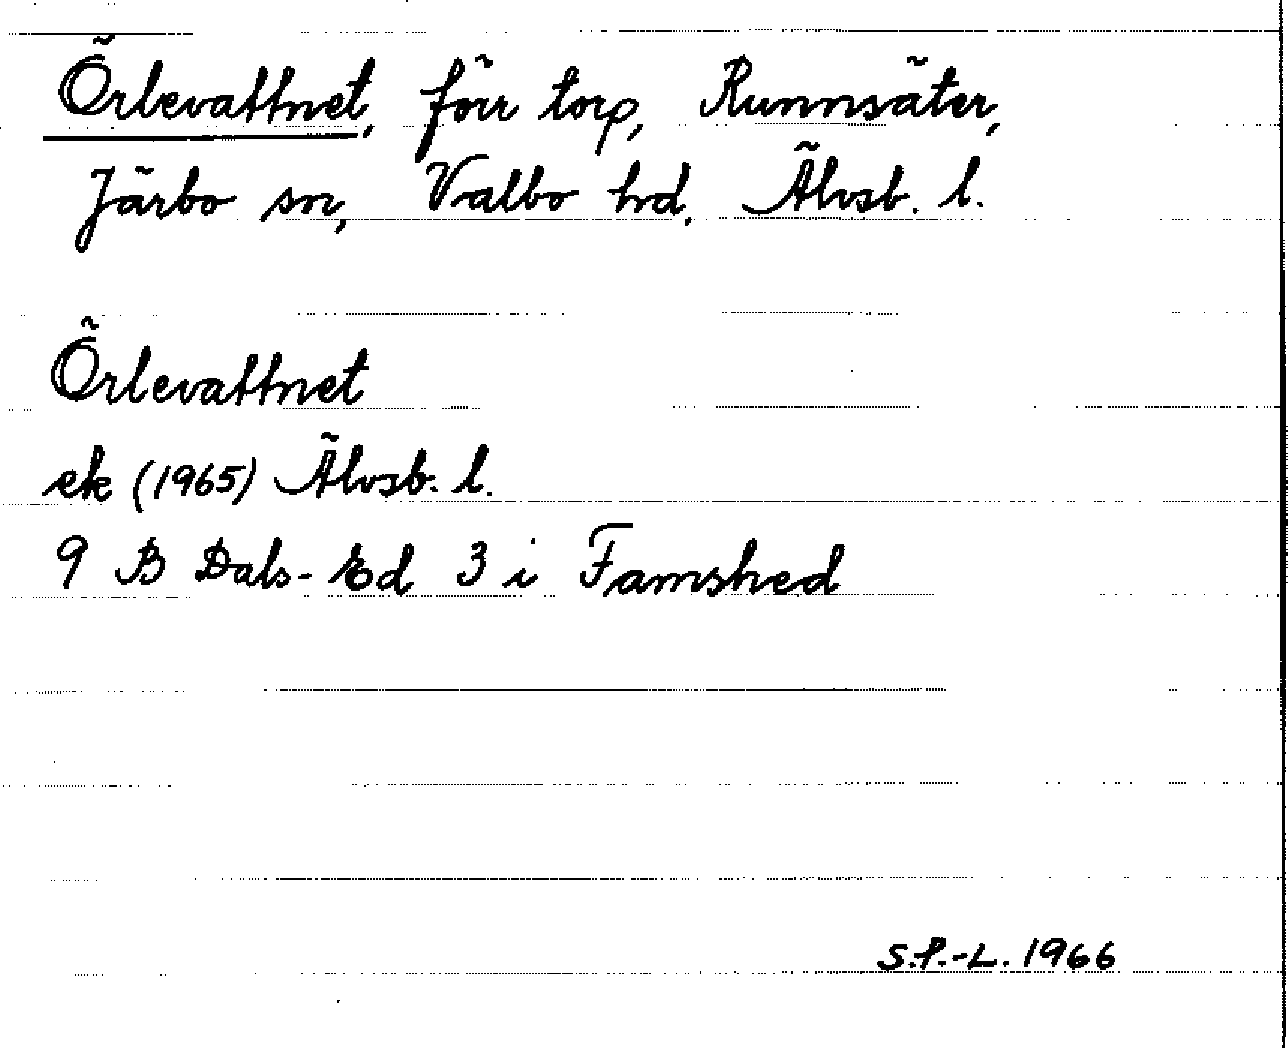 Örlevattnet, förr torp, Runnsäter,
Järbo sn, Valbo hd, Älvsb. l.
Örlevattnet
ek (1965) Älvsb. l.
9 B Dals-Ed 3 i Famshed
S.P.-L. 1966